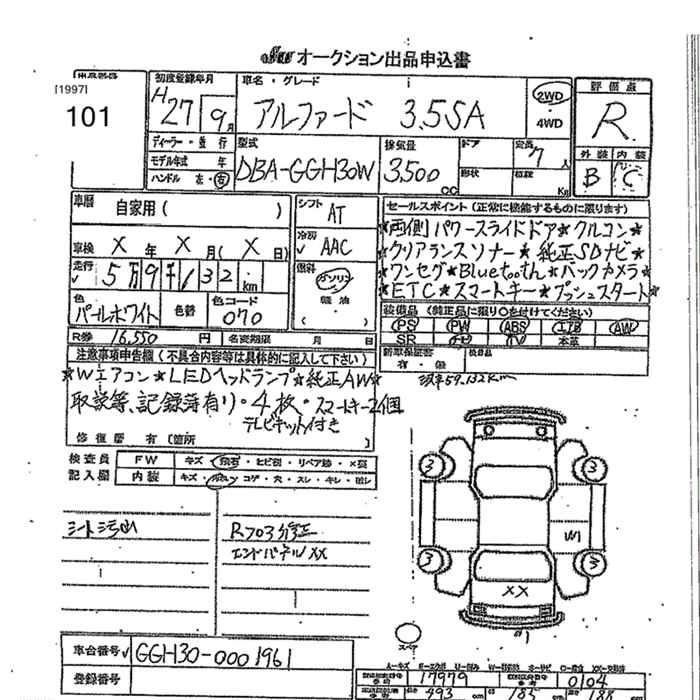 オークション出品申込書
[1997]
101
初度登録年月
H27 9月
車名・グレード
アルファード 3.5SA
2WD
4WD
評価点
R
ディーラー・並行
モデル年式 年
ハンドル 左・右
型式
DBA-GGH30W
排気量
3,500 CC
ドア
形状
定員
7人
Kg
外装 内装
B C
車歴
自家用( )
車検 X年 X月(X日)
走行
5万9千132km
色
パールホワイト
色替
色コード
070
シフト
AT
冷房
AAC
燃料
ガソリン
軽油
セールスポイント(正常に機能するものに限ります)
★両側パワースライドドア★クルコン★
★クリアランスソナー★純正SDナビ★
★ワンセグ★Bluetooth★バックカメラ★
★ETC★スマートキー★プッシュスタート★
装備品(純正品に限り○を付けてください)
PS PW ABS エアB AW
SR ナビ TV 本革
新車保証書
有・無
後日品
R券 16,550円 名変期限 月 日
注意事項申告欄(不具合内容等は具体的に記入して下さい)
★Wエアコン★LEDヘッドランプ★純正AW★
取説等、記録簿有り・4枚・スマートキー2個
テレビキット付き
修復歴 有(箇所
59,132Km
検査員
記入欄
FW キズ・飛石・ヒビ割・リペア跡・×要
内装 キズ・コゲ・穴・スレ・キレ
シート汚れ
R703修正
エンドパネルXX
3
3
3
3
W1
XX
スペア
車台番号
GGH30-0001961
登録番号
17979
0104
493 cm
185 cm
188 cm